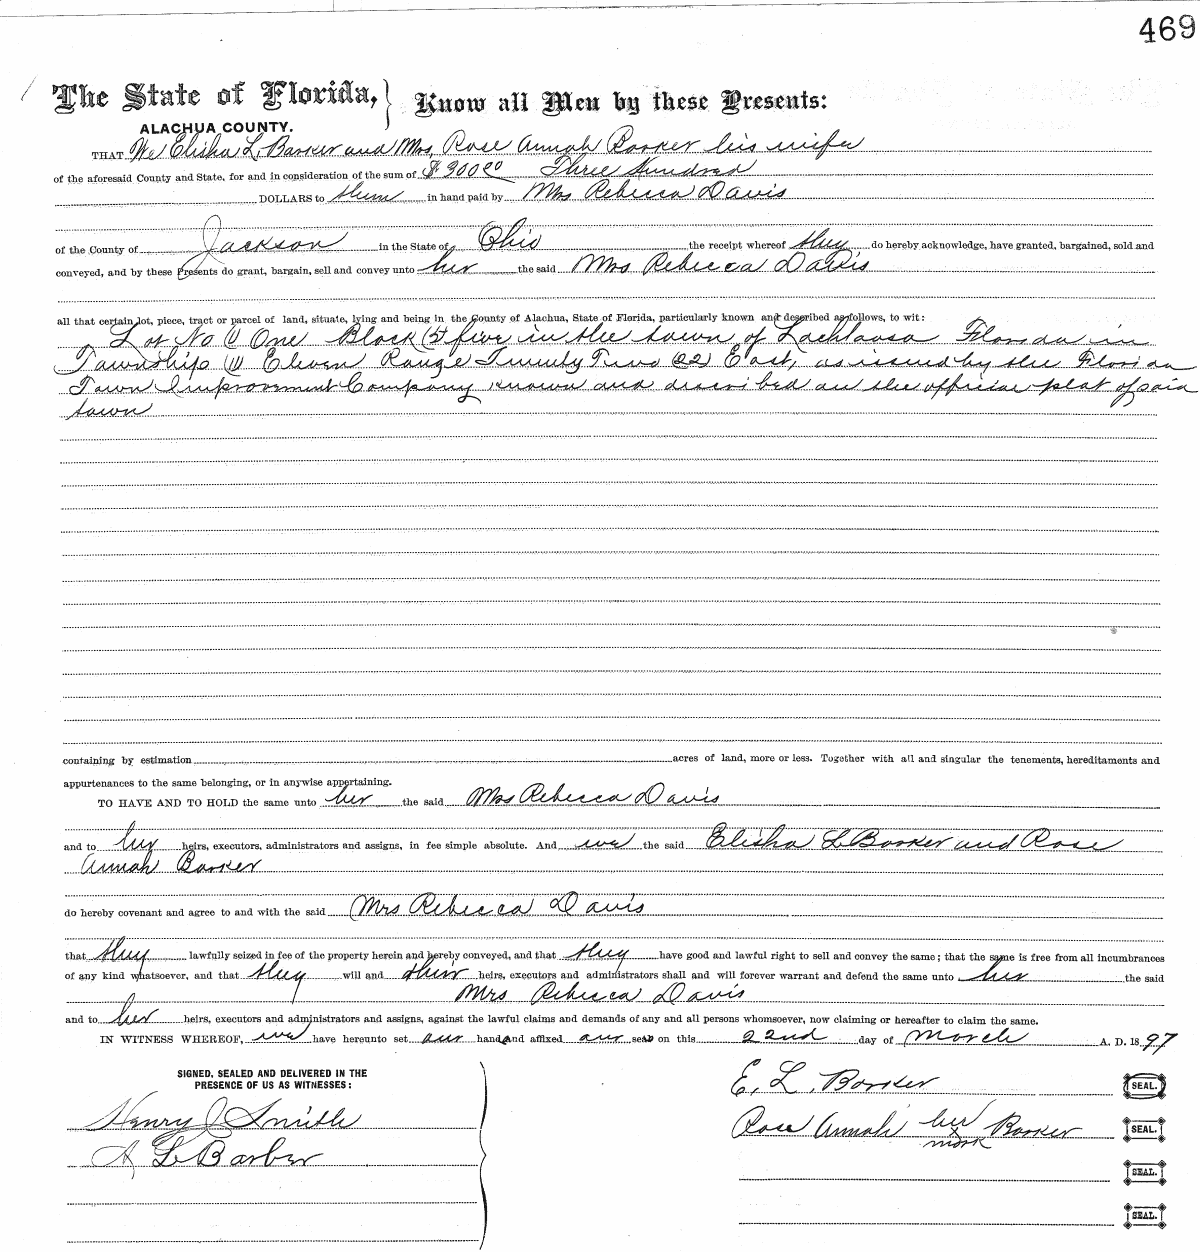 469
The State of Florida, } Know all Men by these Presents:
ALACHUA COUNTY.
THAT We Elisha L. Barker and Mrs, Rose Annah Barker his wife
of the aforesaid County and State, for and in consideration of the sum of $ 300 00 Three Hundred
DOLLARS to them in hand paid by Mrs Rebecca Davis
of the County of Jackson in the State of Ohio the receipt whereof they do hereby acknowledge, have granted, bargained, sold and
conveyed, and by these Presents do grant, bargain, sell and convey unto her the said Mrs Rebecca Davis
all that certain lot, piece, tract or parcel of land, situate, lying and being in the County of Alachua, State of Florida, particularly known and described as follows, to wit:
Lot No (1) One Block (5) five in the town of Lochloosa Florida in
Township (11) Eleven Range Twenty Two (22) East, as issued by the Florida
Town Improvment Company known and described on the official plat of said
town
containing by estimation acres of land, more or less. Together with all and singular the tenements, hereditaments and
appurtenances to the same belonging, or in anywise appertaining.
TO HAVE AND TO HOLD the same unto her the said Mrs Rebecca Davis
and to her heirs, executors, administrators and assigns, in fee simple absolute. And we the said Elisha L Barker and Rose
Annah Barker
do hereby covenant and agree to and with the said Mrs Rebecca Davis
that they lawfully seized in fee of the property herein and hereby conveyed, and that they have good and lawful right to sell and convey the same; that the same is free from all incumbrances
of any kind whatsoever, and that they will and their heirs, executors and administrators shall and will forever warrant and defend the same unto her the said
Mrs Rebecca Davis
and to her heirs, executors and administrators and assigns, against the lawful claims and demands of any and all persons whomsoever, now claiming or hereafter to claim the same.
IN WITNESS WHEREOF, we have hereunto set our hand and affixed our seal on this 22nd day of March A. D. 18 97
SIGNED, SEALED AND DELIVERED IN THE
PRESENCE OF US AS WITNESSES:
E. L. Barker SEAL.
Henry J Smith
Rose Annah her x mark Barker SEAL.
A L Barber
SEAL.
SEAL.